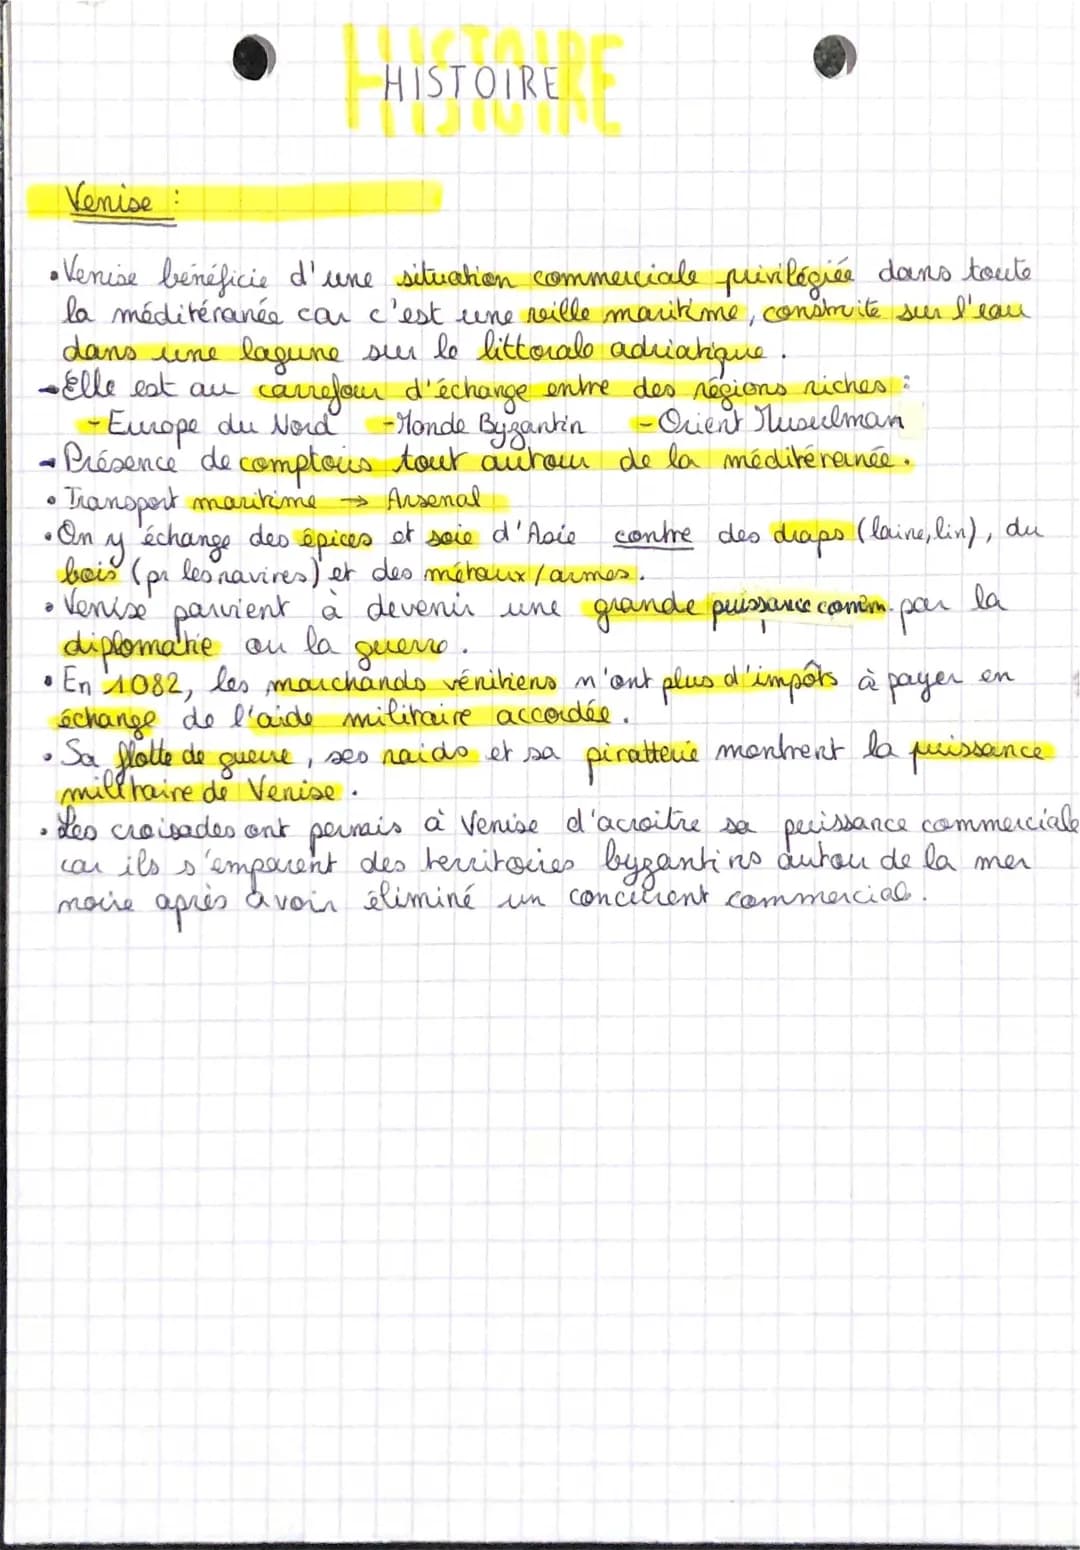 HISTOIRE
HISTOIRE
Venise :
• Venise bénéficie d'une situation commerciale privilégiée dans toute
la méditéranée car c'est une ville maritime, construite sur l'eau
dans une lagune sur le littorale adriatique.
→ Elle est au carrefour d'échange entre des régions riches :
- Europe du Nord - Monde Byzantin - Orient Musulman
→ Présence de comptoirs tout autour de la méditéreinée.
• Transport maritime → Arsenal
• On y échange des épices et soie d'Asie contre des draps (laine, lin), du
bois (pr les navires) et des métaux/armes.
• Venise parvient à devenir une grande puissance comm. par la
diplomatie ou la guerre.
• En 1082, les marchands vénitiens n'ont plus d'impôts à payer en
échange de l'aide militaire accordée.
• Sa flotte de guerre, ses raids et sa piratterie montrent la puissance
militaire de Venise.
• Les croisades ont permis à Venise d'acroitre sa puissance commerciale
car ils s'emparent des territoires byzantins autou de la mer
noire après avoir éliminé un concurrent commercial.